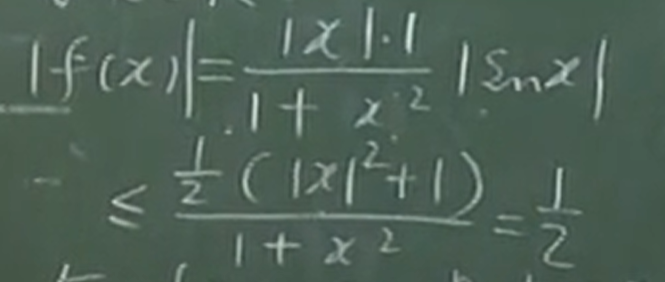 |f(x)| = \frac{|x|·1}{1+x^2} |sin x|
≤ \frac{\frac{1}{2}(|x|^2+1)}{1+x^2} = \frac{1}{2}